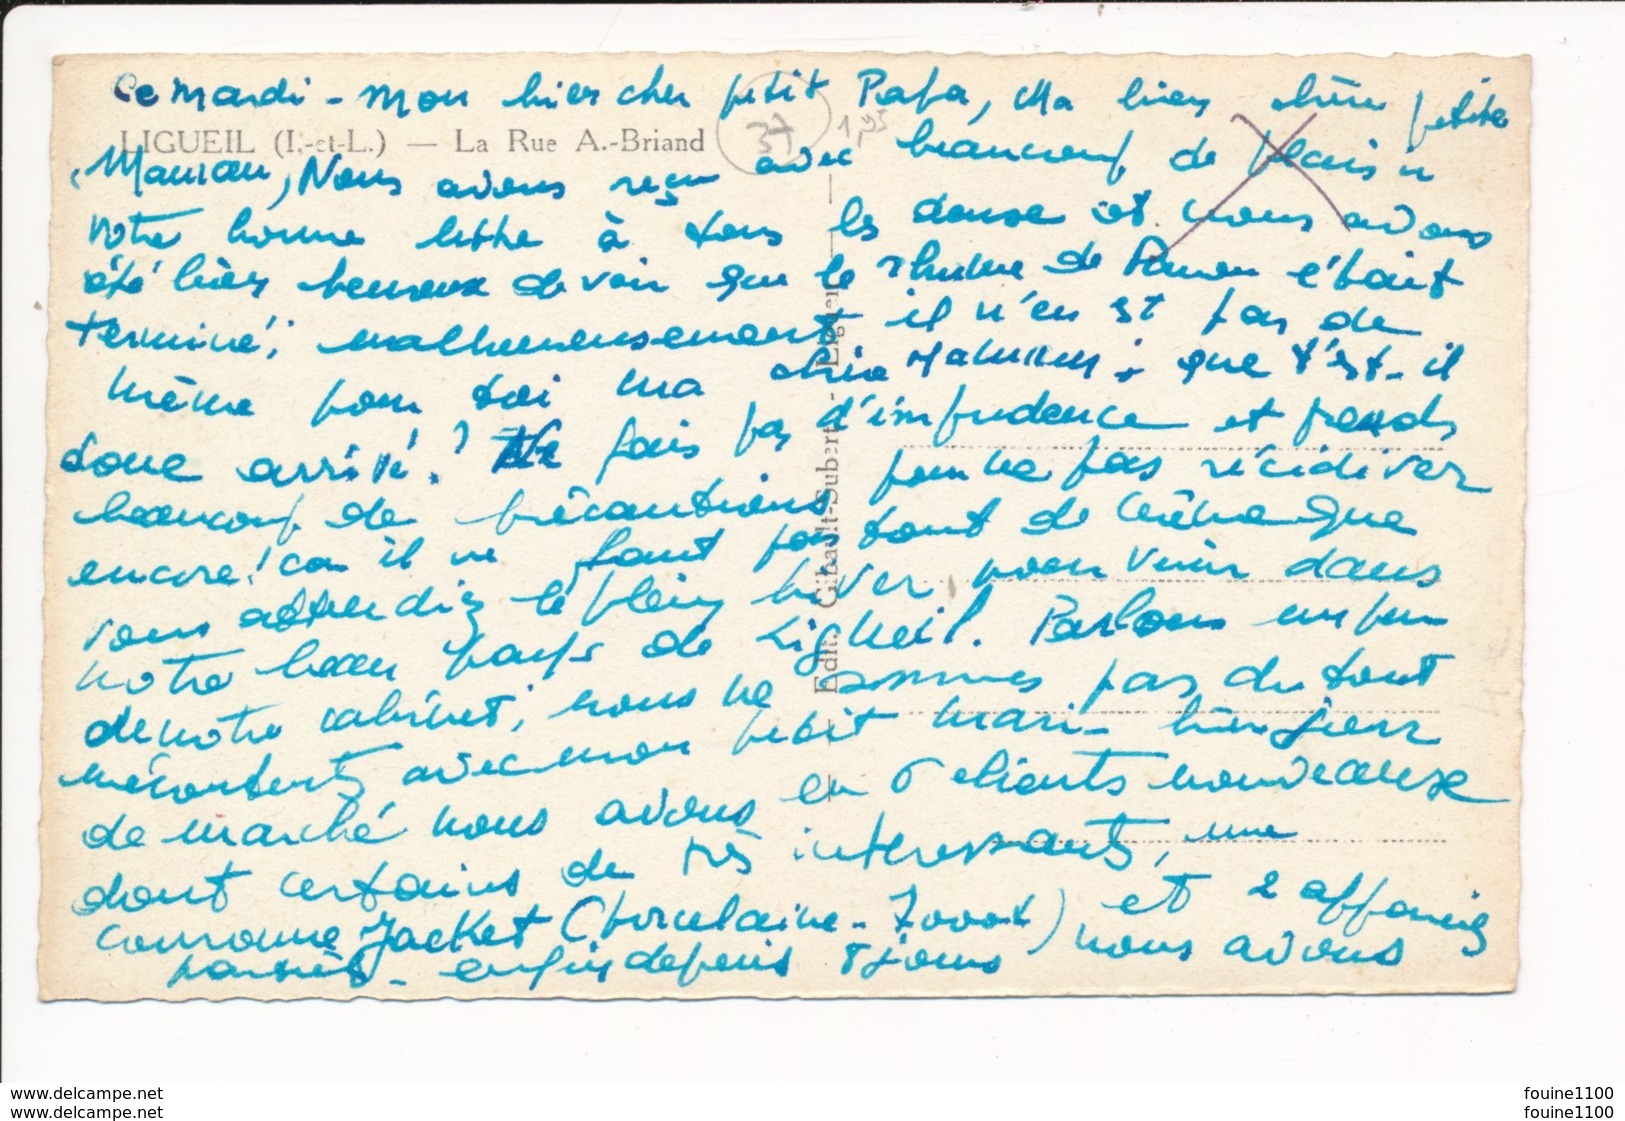 Ce mardi - Mon bien cher petit Papa, Ma bien chère petite
LIGUEIL (I.-et-L.) — La Rue A.-Briand
37
Maman, Nous avons reçu avec beaucoup de plaisir
votre bonne lettre à tous les deux et nous avons
été bien heureux de voir que le rhume de était
terminé; malheureusement il n'en est pas de
même pour toi ma chère Maman; que t'est-il
donc arrivé? Ne fais pas d'imprudence et prends
beaucoup de précautions pour ne pas récidiver
encore! car il ne faut pas tout de même que
vous attendiez le plein hiver pour venir dans
notre beau pays de Ligueil. Parlons un peu
de notre cabinet; nous ne sommes pas du tout
mécontents avec mon petit mari - hier jour
de marché nous avons eu 6 clients nouveaux
dont certains de très intéressants, une
couronne Jacket (porcelaine - 7000f) et 2 appareils
- enfin depuis 8 jours nous avons
Edit. Gibault-Subert - Ligueil
www.delcampe.net
www.delcampe.net
fouine1100
fouine1100